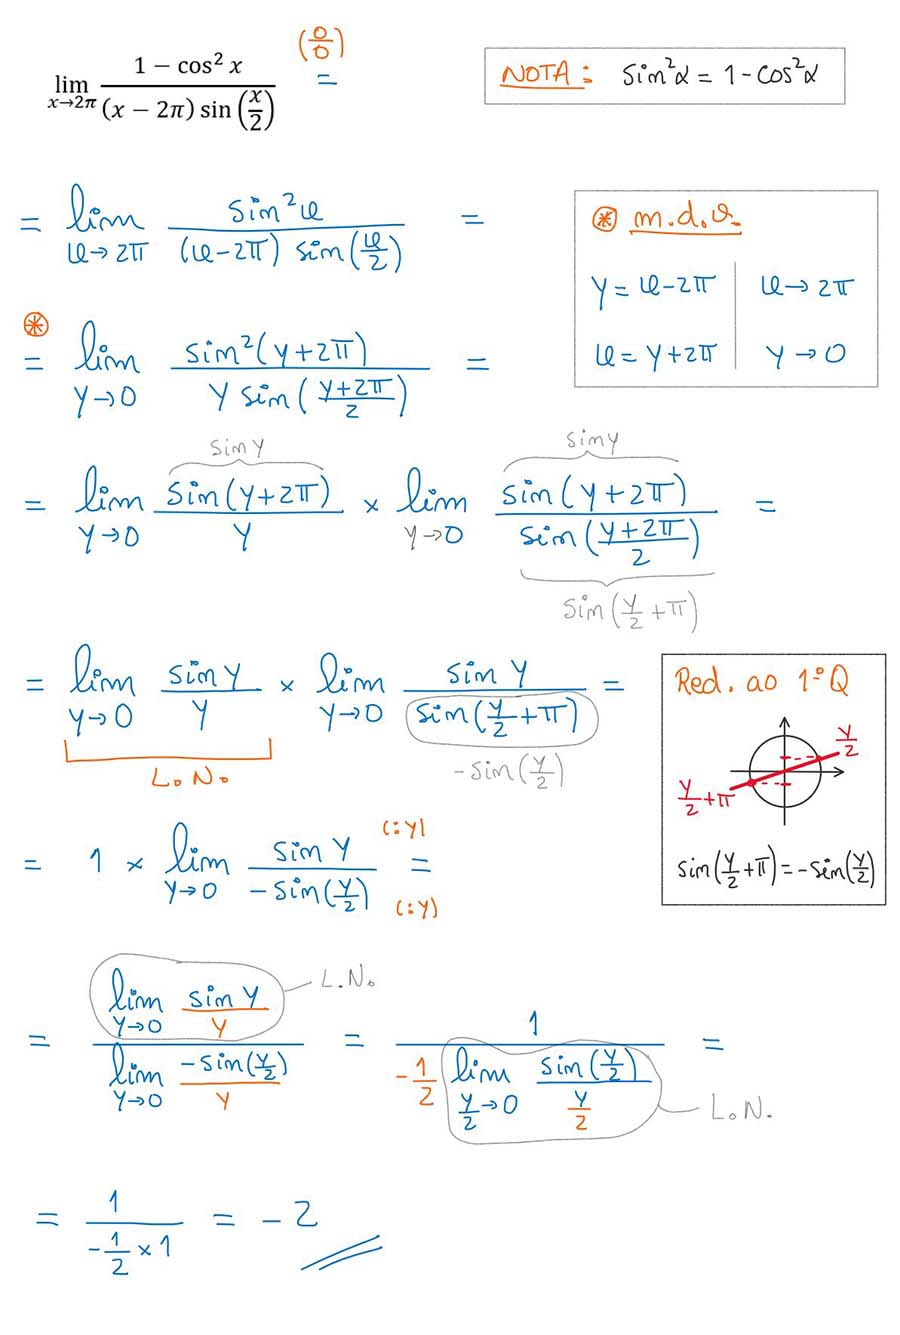 lim x→2π (1 − cos² x) / ((x − 2π) sin(x/2)) (0/0) =
NOTA: sin²α = 1 - cos²α
= lim x→2π sin²x / ((x-2π) sin(x/2)) =
⊛ m.d.v.
y = x-2π | x→2π
x = y+2π | y→0
⊛
= lim y→0 sin²(y+2π) / (y sin((y+2π)/2)) =
sin y sin y
= lim y→0 sin(y+2π) / y × lim y→0 sin(y+2π) / sin((y+2π)/2) =
sin(y/2 + π)
= lim y→0 sin y / y × lim y→0 sin y / sin(y/2 + π) =
L.N. -sin(y/2)
Red. ao 1ºQ
y/2
y/2 + π
sin(y/2 + π) = -sin(y/2)
= 1 × lim y→0 sin y / -sin(y/2) (:y) = (:y)
= (lim y→0 sin y / y) / (lim y→0 -sin(y/2) / y) = 1 / (-1/2 lim y/2→0 sin(y/2) / (y/2)) =
L.N.
L.N.
= 1 / (-1/2 × 1) = -2